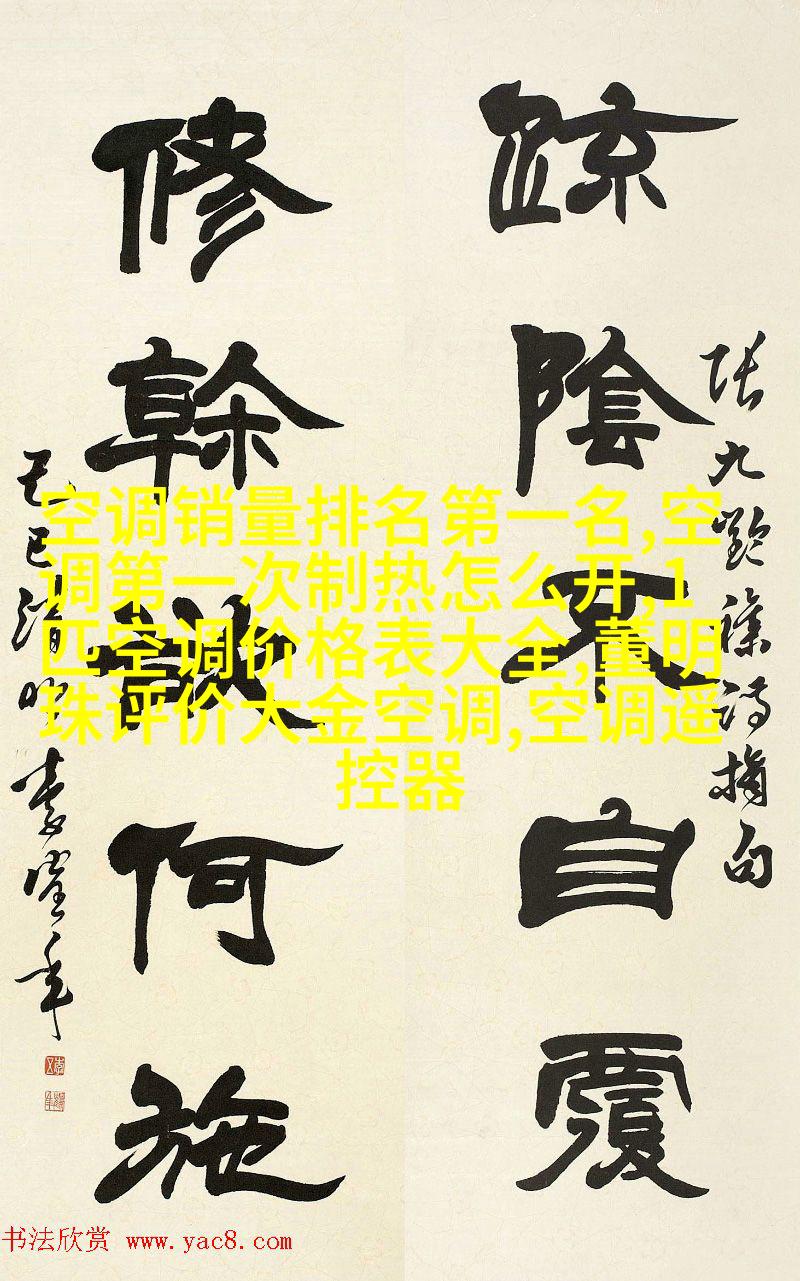 疎陰不自覆
張九齡雜詩摘句
修幹欲何施
己巳清明
空调销量排名第一名,空
调第一次制热怎么开,1
匹空调价格表大全,董明
珠评价大金空调,空调遥
控器
书法欣赏 www.yac8.com